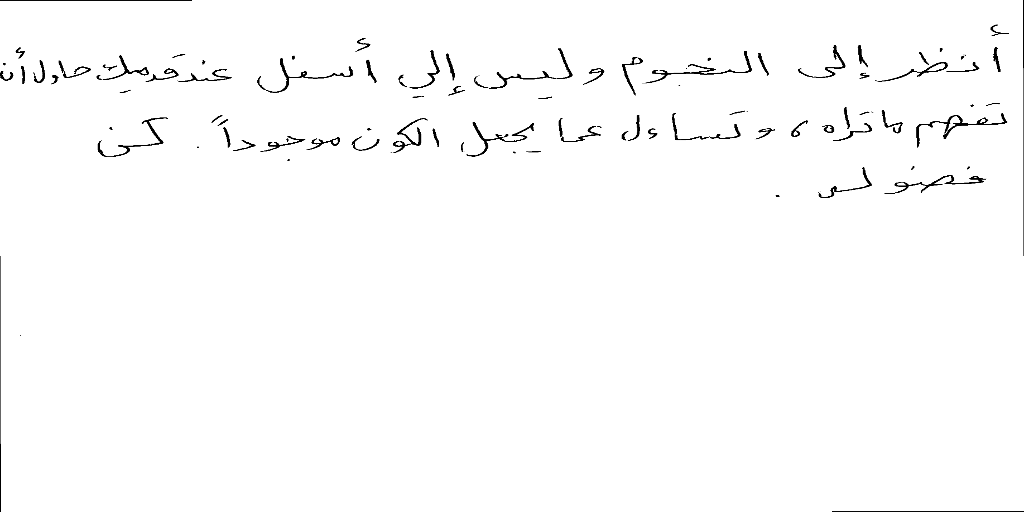 أنظر إلى النجوم وليس إلي أسفل عند قدميك حاول أن
تفهم ما تراه، وتساءل عما يجعل الكون موجوداً. كن
فضولي.